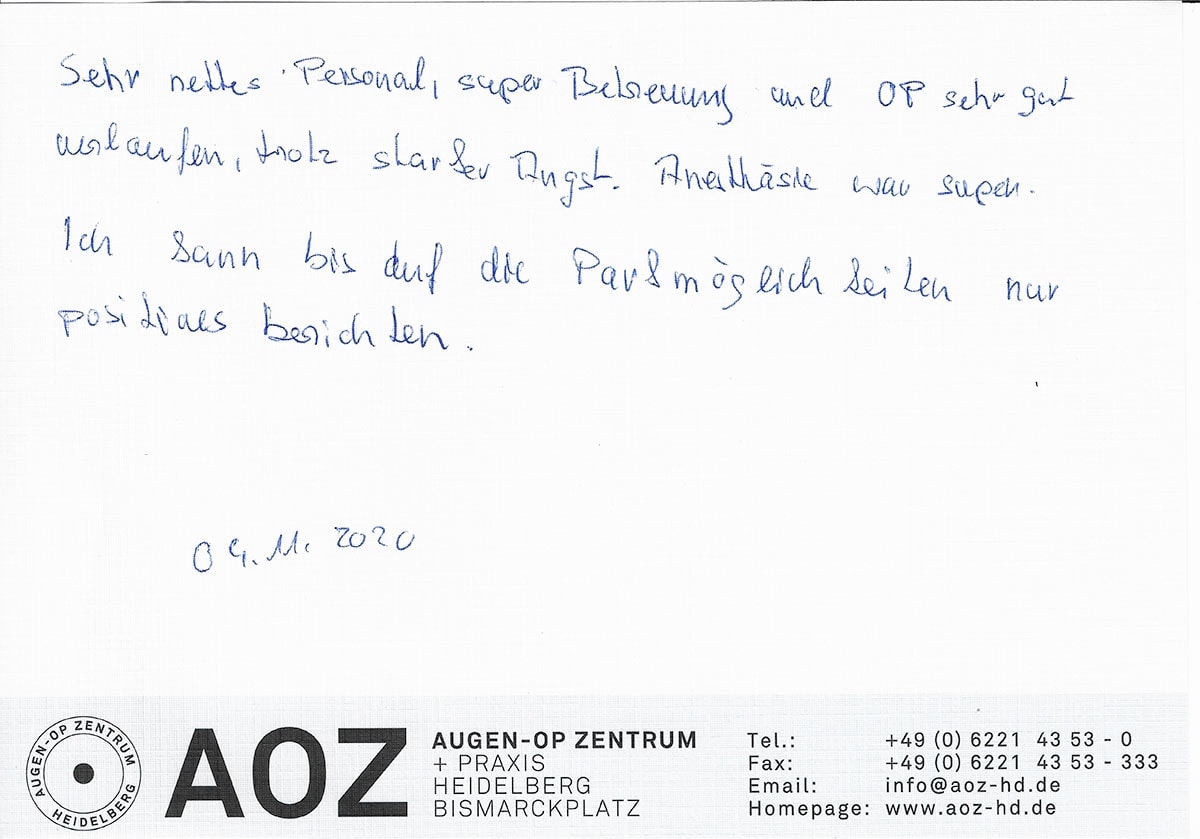 Sehr nettes Personal, super Betreuung und OP sehr gut
verlaufen, trotz starker Angst. Anesthäsie war super.
Ich kann bis auf die Parkmöglichkeiten nur
positives berichten.
09.11.2020
AUGEN-OP ZENTRUM HEIDELBERG
AOZ
AUGEN-OP ZENTRUM
+ PRAXIS
HEIDELBERG
BISMARCKPLATZ
Tel.: +49 (0) 6221 43 53 - 0
Fax: +49 (0) 6221 43 53 - 333
Email: info@aoz-hd.de
Homepage: www.aoz-hd.de